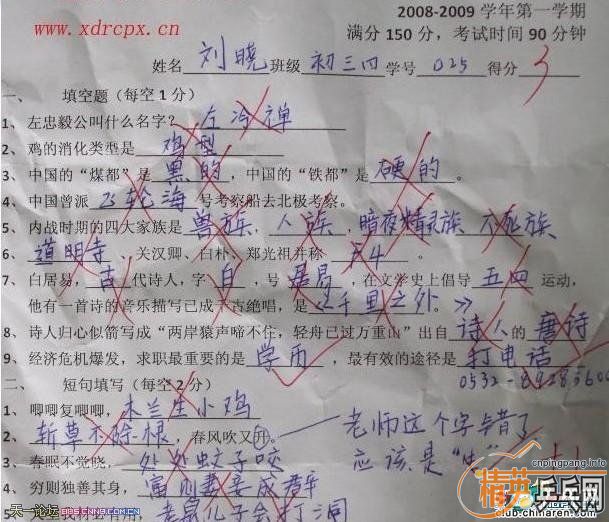 www.xdrcpx.cn
2008-2009 学年第一学期
满分 150 分，考试时间 90 分钟
姓名 刘晓 班级 初三四 学号 025 得分 3
一、 填空题（每空 1 分）
1、左忠毅公叫什么名字？ 左冷禅
2、鸡的消化类型是 鸡型
3、中国的“煤都”是 黑的，中国的“铁都”是 硬的。
4、中国曾派 飞轮海 号考察船去北极考察。
5、内战时期的四大家族是 兽族、人族、暗夜精灵族、不死族
6、 道明寺、关汉卿、白朴、郑光祖并称 F4。
7、白居易，古 代诗人，字 白，号 居易，在文学史上倡导 五四 运动，
他有一首诗的音乐描写已成千古绝唱，是《千里之外。》
8、诗人归心似箭写成“两岸猿声啼不住，轻舟已过万重山”出自 诗人 的 唐诗
9、经济危机爆发，求职最重要的是 学历，最有效的途径是 打电话
0532-89285600
二、 短句填写（每空 2 分）
1、唧唧复唧唧，木兰生小鸡
2、斩草不除根，春风吹又升。 老师这个字错了
应该是“生”
3、春眠不觉晓，处处蚊子咬
4、穷则独善其身，富则妻妾成群
天一论坛 BBS.CNNB.COM
精英乒乓网
cnpingpang.info
club.chinaren.com